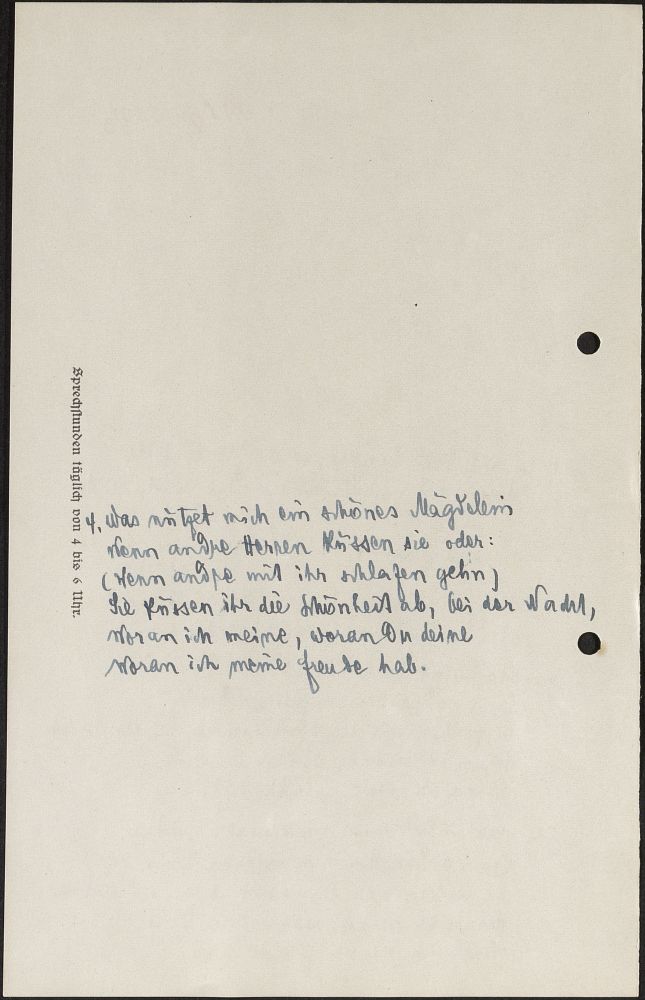 Sprechstunden täglich von 4 bis 6 Uhr.
4. Was nützet mich ein schönes Mägdelein
Wenn andre Herren küssen sie oder:
(Wenn andre mit ihr schlafen gehn)
Sie küssen ihr die Schönheit ab, bei der Nacht,
Woran ich meine, woran Du deine
Woran ich meine Freude hab.